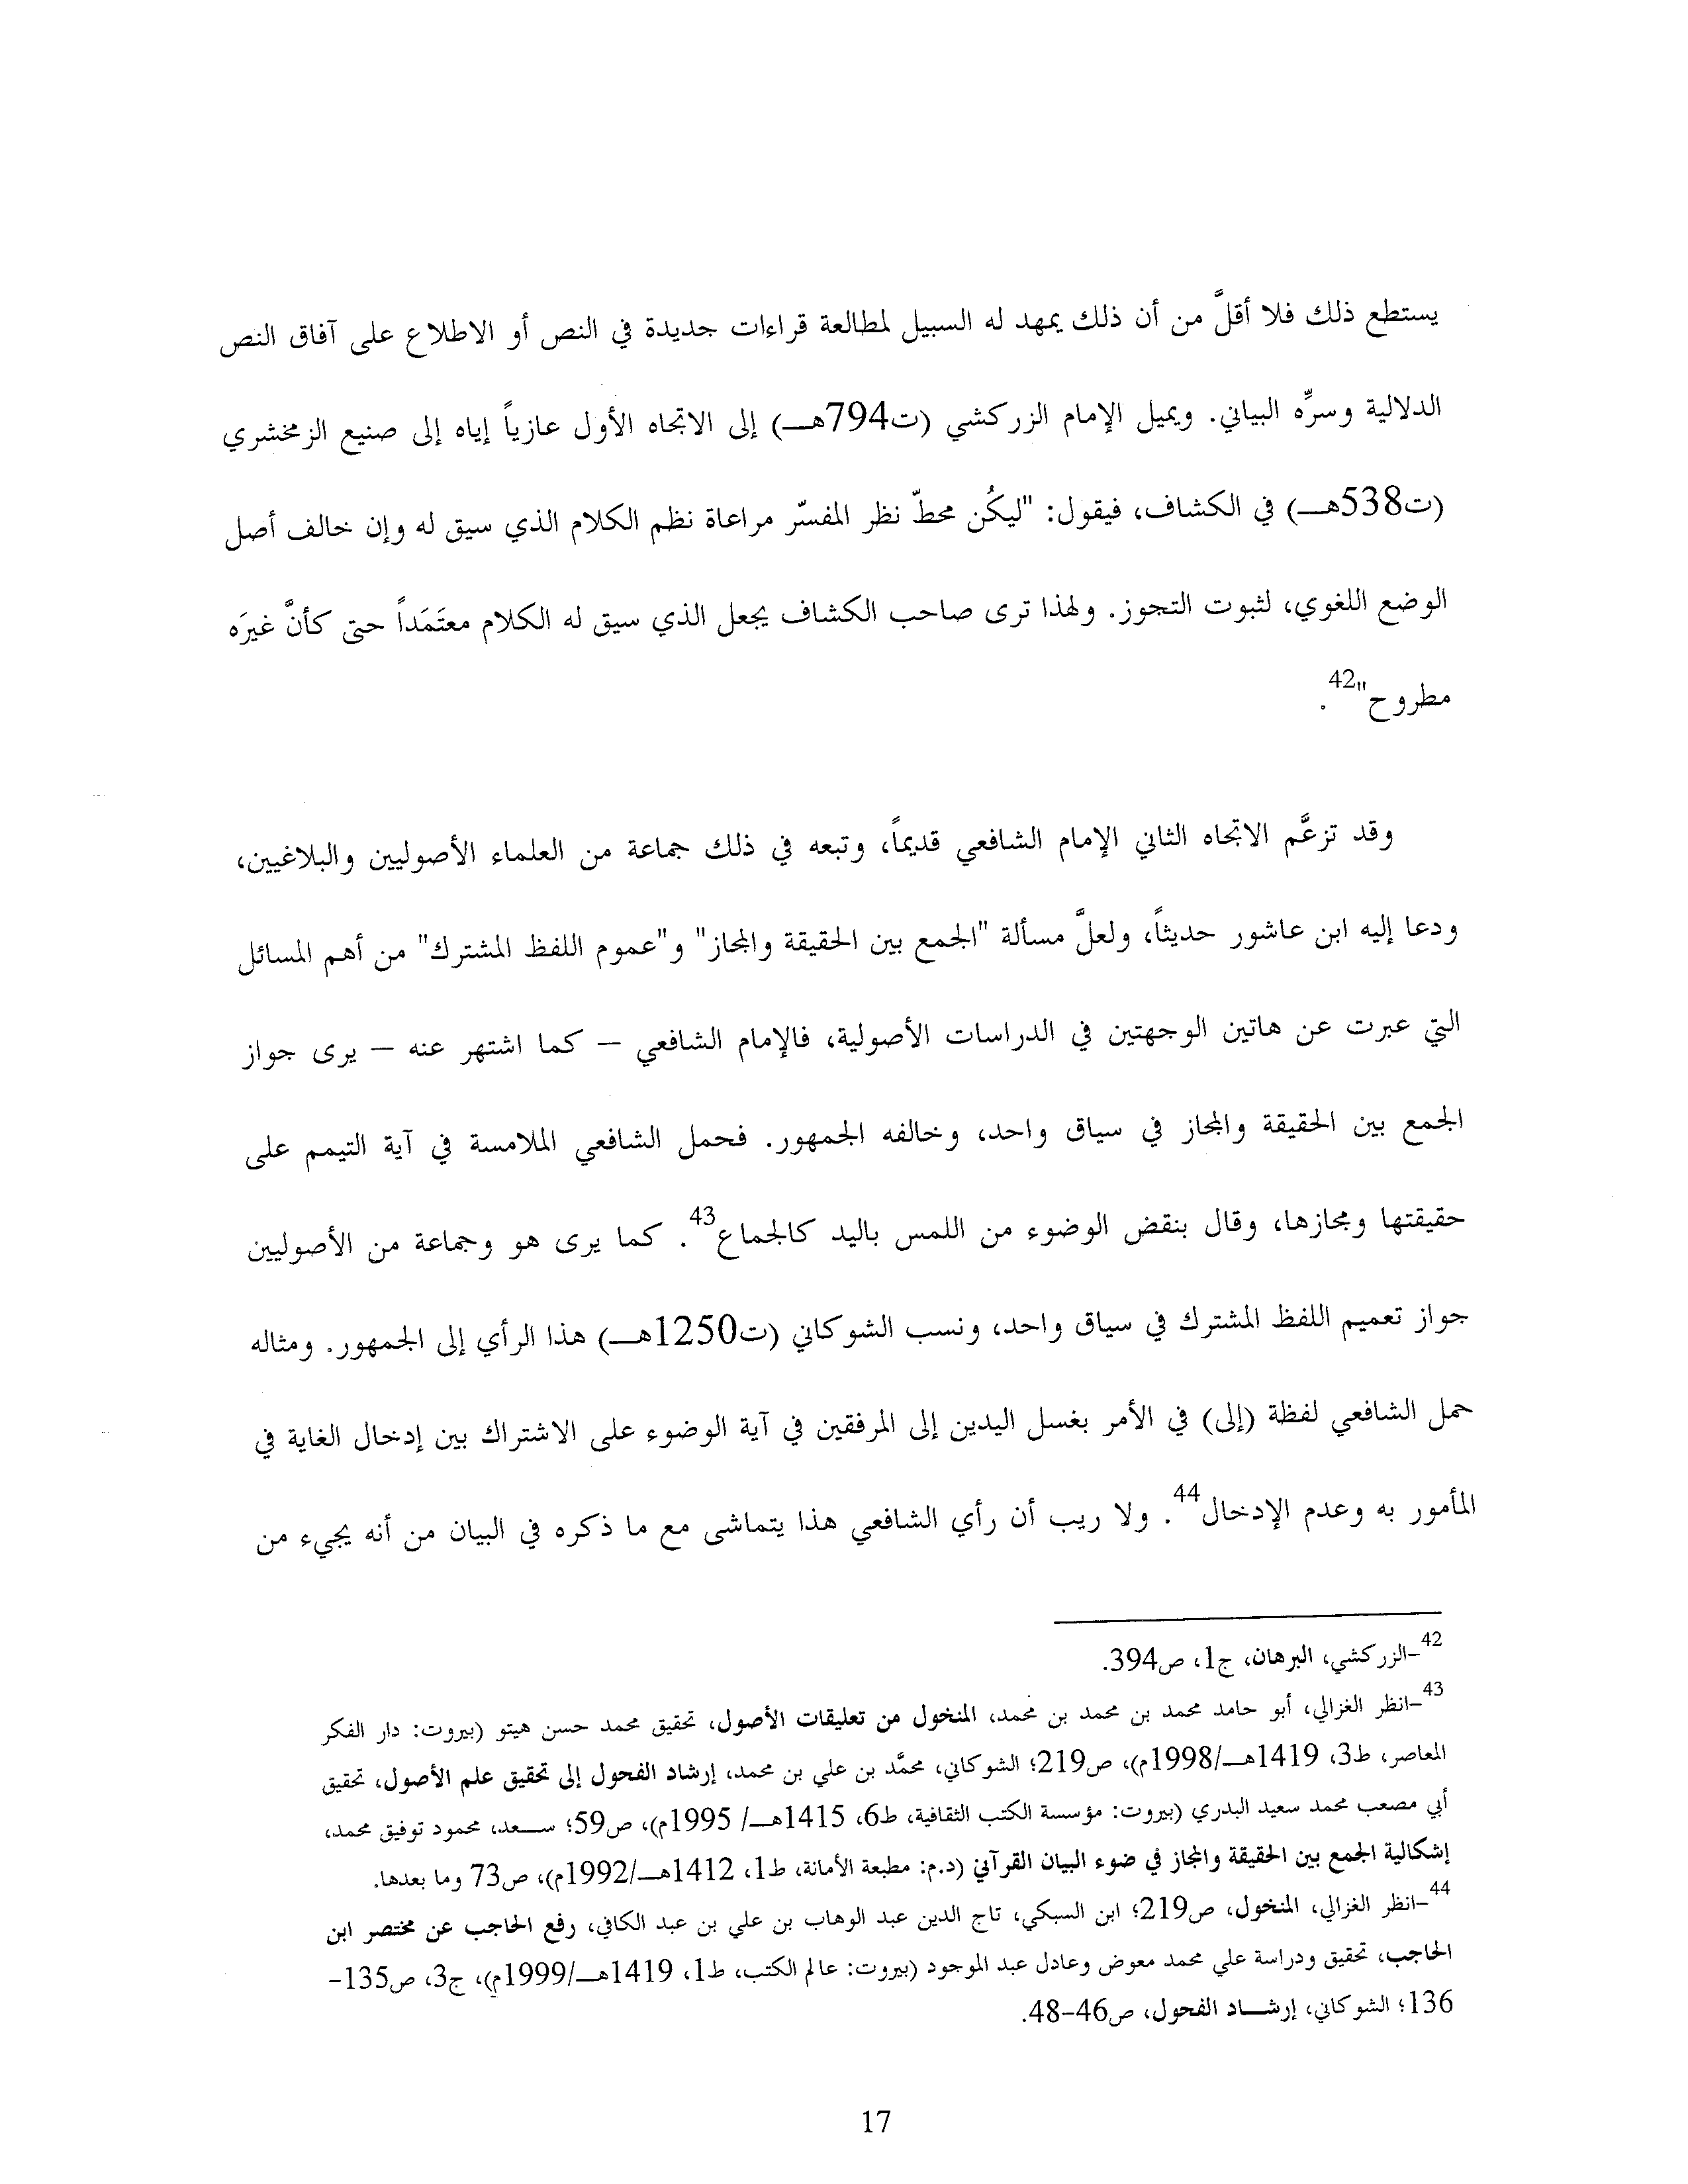 يستطع ذلك فلا أقلَّ من أن ذلك يمهد له السبيل لمطالعة قراءات جديدة في النص أو الاطلاع على آفاق النص
الدلالية وسرِّه البياني. ويميل الإمام الزركشي (ت794هـ) إلى الاتجاه الأول عازياً إياه إلى صنيع الزمخشري
(ت538هـ) في الكشاف، فيقول: "ليكُن محطّ نظر المفسّر مراعاة نظم الكلام الذي سيق له وإن خالف أصل
الوضع اللغوي، لثبوت التجوز. ولهذا ترى صاحب الكشاف يجعل الذي سيق له الكلام معتَمَداً حتى كأنَّ غيرَه
مطروح"42.
وقد تزعَّم الاتجاه الثاني الإمام الشافعي قديماً، وتبعه في ذلك جماعة من العلماء الأصوليين والبلاغيين،
ودعا إليه ابن عاشور حديثاً، ولعلَّ مسألة "الجمع بين الحقيقة والمجاز" و"عموم اللفظ المشترك" من أهم المسائل
التي عبرت عن هاتين الوجهتين في الدراسات الأصولية، فالإمام الشافعي – كما اشتهر عنه – يرى جواز
الجمع بين الحقيقة والمجاز في سياق واحد، وخالفه الجمهور. فحمل الشافعي الملامسة في آية التيمم على
حقيقتها ومجازها، وقال بنقض الوضوء من اللمس باليد كالجماع43. كما يرى هو وجماعة من الأصوليين
جواز تعميم اللفظ المشترك في سياق واحد، ونسب الشوكاني (ت1250هـ) هذا الرأي إلى الجمهور. ومثاله
حمل الشافعي لفظة (إلى) في الأمر بغسل اليدين إلى المرفقين في آية الوضوء على الاشتراك بين إدخال الغاية في
المأمور به وعدم الإدخال44. ولا ريب أن رأي الشافعي هذا يتماشى مع ما ذكره في البيان من أنه يجيء من
42-الزركشي، البرهان، ج1، ص394.
43-انظر الغزالي، أبو حامد محمد بن محمد بن محمد، المنخول من تعليقات الأصول، تحقيق محمد حسن هيتو (بيروت: دار الفكر
المعاصر، ط3، 1419هـ/1998م)، ص219؛ الشوكاني، محمَّد بن علي بن محمد، إرشاد الفحول إلى تحقيق علم الأصول، تحقيق
أبي مصعب محمد سعيد البدري (بيروت: مؤسسة الكتب الثقافية، ط6، 1415هـ/ 1995م)، ص59؛ سعد، محمود توفيق محمد،
إشكالية الجمع بين الحقيقة والمجاز في ضوء البيان القرآني (د.م: مطبعة الأمانة، ط1، 1412هـ/1992م)، ص73 وما بعدها.
44-انظر الغزالي، المنخول، ص219؛ ابن السبكي، تاج الدين عبد الوهاب بن علي بن عبد الكافي، رفع الحاجب عن مختصر ابن
الحاجب، تحقيق ودراسة علي محمد معوض وعادل عبد الموجود (بيروت: عالم الكتب، ط1، 1419هـ/1999م)، ج3، ص135-
136؛ الشوكاني، إرشاد الفحول، ص46-48.
17